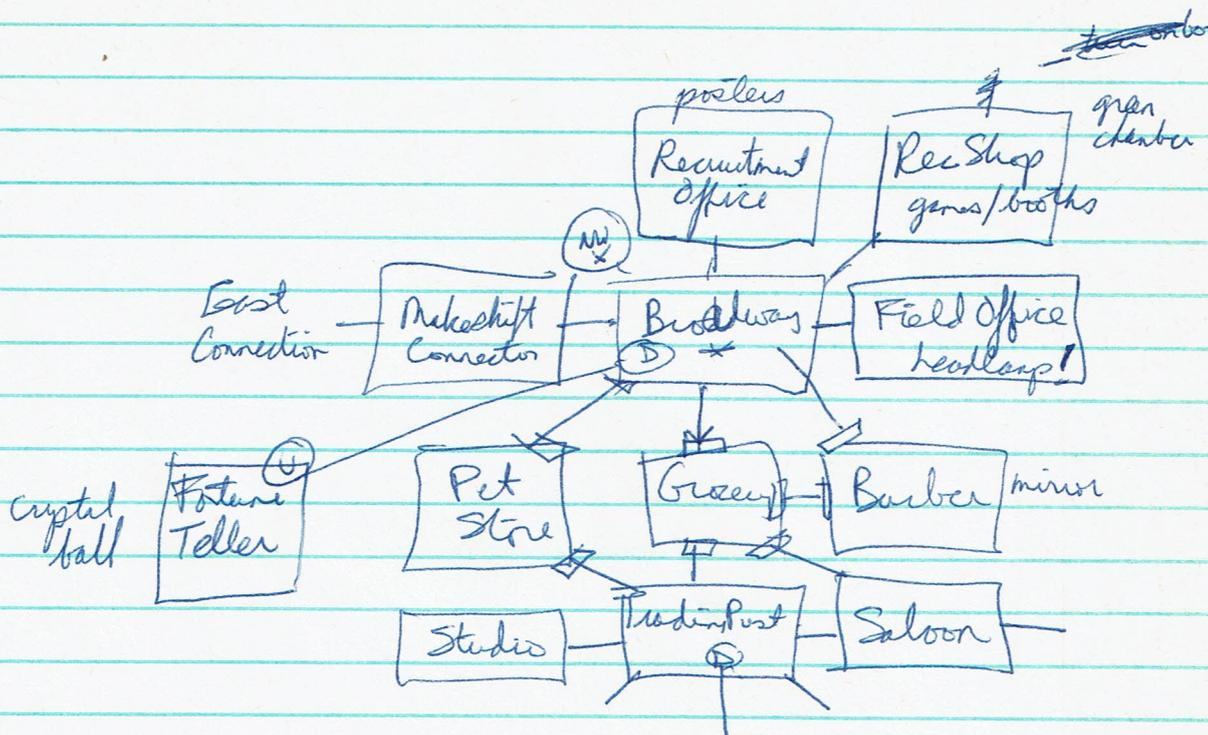 posters
green
chamber
Recruitment
Office
RecShop
games/booths
NW
X
East
Connection
Makeshift
Connector
Broadway
D
Field Office
headlamp!
Crystal
ball
U
Fortune
Teller
Pet
Store
Grocery
Barber
mirror
Studio
Trading Post
D
Saloon